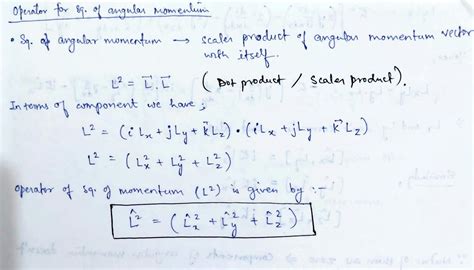 Operator for Sq. of angular momentum
• Sq. of angular momentum → scaler product of angular momentum vector
with itself.
L² = L⃗ . L⃗ (Dot product / Scaler product).
In terms of component we have ;
L² = (i⃗Lx + jLy + k⃗Lz) • (iLx + jLy + k⃗Lz)
L² = (Lx² + Ly² + Lz²)
operator of sq. of momentum (L²) is given by :-
L̂² = (L̂x² + L̂y² + L̂z²)